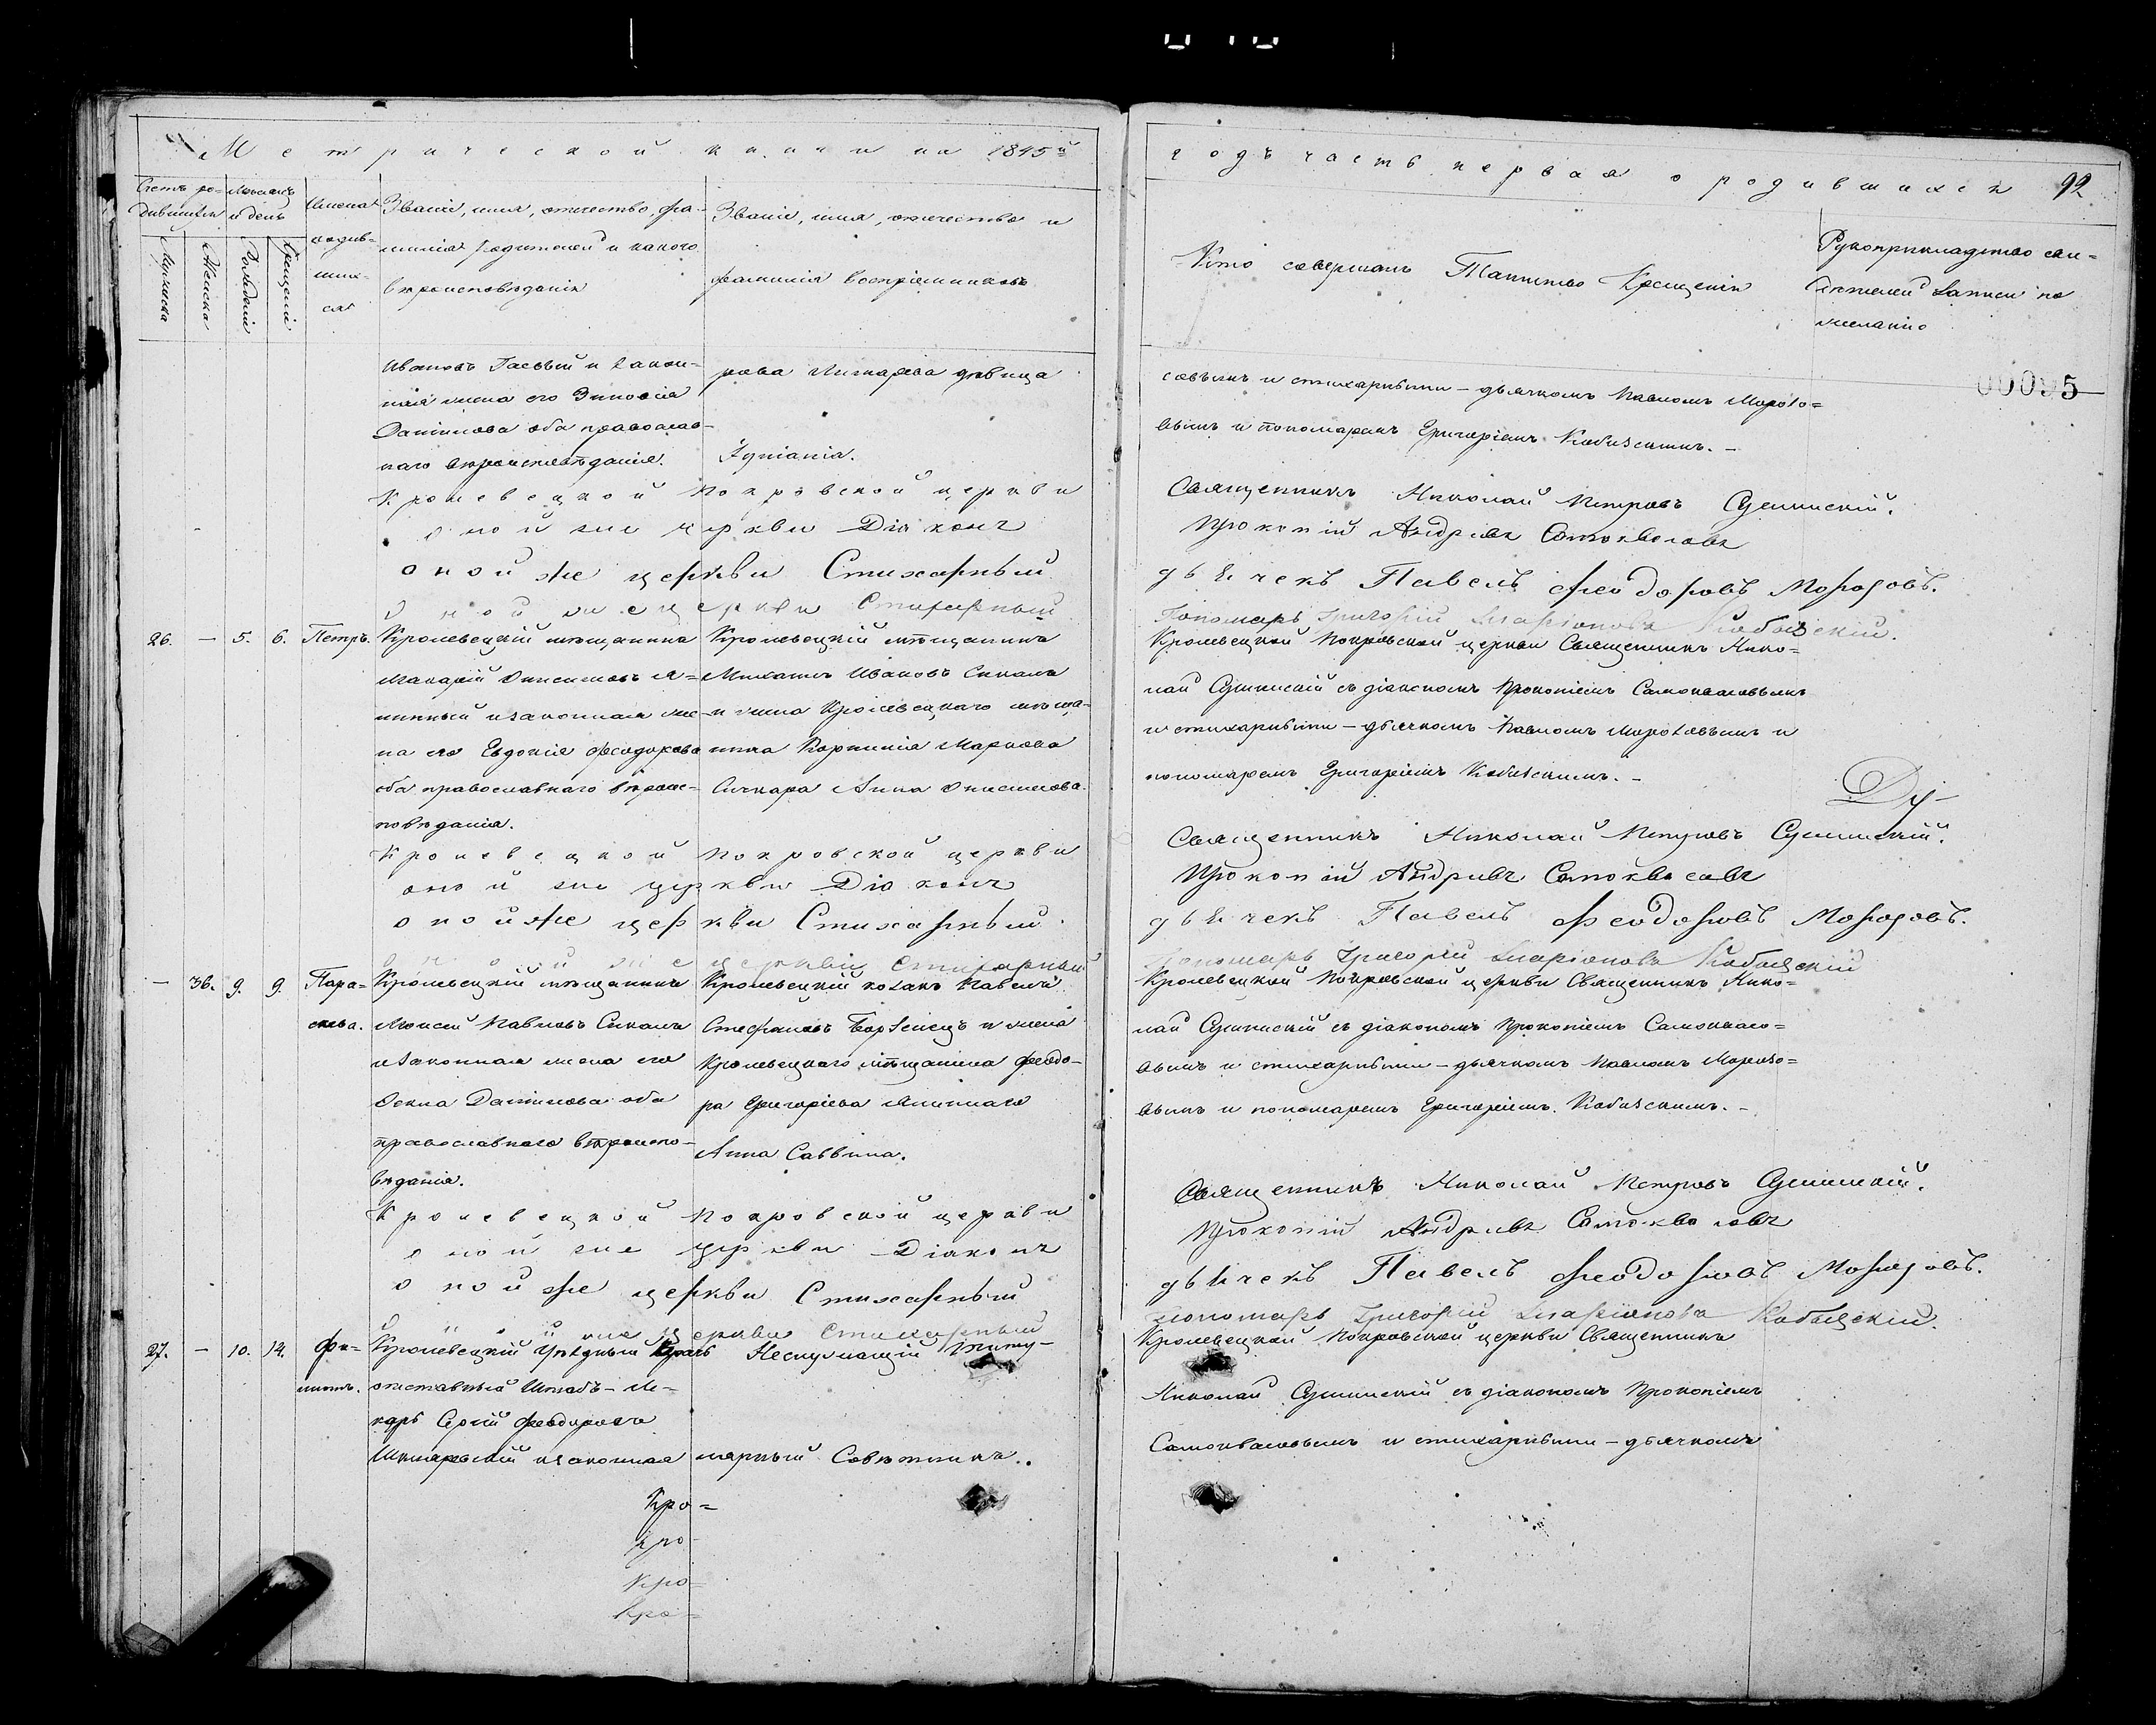 Метрической книги на 1845й
годъ часть первая о родившихся 92
Счетъ ро-
дившихся
Мѣсяцъ
и день
Имена
родив-
ших-
ся
Званіе, имя, отчество, фа-
милія родителей и какого
вѣроисповѣданія
Званіе, имя, отчество и
фамилія воспріемниковъ
Мужеска
Женска
Рожденія
Крещенія
Кто совершалъ Таинство Крещенія
Рукоприкладство сви-
дѣтелей записи по
желанію
00095
Ивановъ и закон-
ная жена его Зиновія
Данилова оба православ-
наго вѣроисповѣданія.
рова дѣвица
совымъ и стихарнымъ-дьячкомъ Павломъ Морозо=
вымъ и пономаремъ Григоріемъ Кобызскимъ.-
Кролевецкой Покровской церкви
Священникъ Николай Петровъ
оной же церкви Діаконъ
Прокопій Андріевъ Самоквасовъ
оной же церкви Стихарный
дьячекъ Павелъ Феодоровъ Морозовъ.
оной же церкви Стихарный
Пономарь Григорій Иларіоновъ Кобызскій.
26. - 5. 6. Петръ.
Кролевецкій мѣщанинъ
Макарій Онисимовъ Я-
линный и законная же-
на его Евдокія Феодорова
оба православнаго вѣроис-
повѣданія.
Кролевецкій мѣщанинъ
Михаилъ Ивановъ Сикаль
и жена Кролевецкаго мѣща-
нина Корнилія Маркова
Анна Онисимова.
Кролевецкой Покровской церкви Священникъ Нико=
лай съ діакономъ Прокопіемъ Самоквасовымъ
и стихарнымъ-дьячкомъ Павломъ Морозовымъ и
пономаремъ Григоріемъ Кобызскимъ.-
Кролевецкой Покровской церкви
Священникъ Николай Петровъ
оной же церкви Діаконъ
Прокопій Андріевъ Самоквасовъ
оной же церкви Стихарный
дьячекъ Павелъ Феодоровъ Морозовъ.
оной же церкви Стихарный
Пономарь Григорій Иларіоновъ Кобызскій
- 36. 9. 9. Пара=
скева.
Кролевецкій мѣщанинъ
Моисей Павловъ Сикаль
и законная жена его
Данилова оба
православнаго вѣроиспо-
вѣданія.
Кролевецкій козакъ Павелъ
Стефановъ и жена
Кролевецкаго мѣщанина Феодо-
ра Григоріева Ялиннаго
Анна Саввина.
Кролевецкой Покровской церкви Священникъ Нико=
лай съ діакономъ Прокопіемъ Самоквасо=
вымъ и стихарнымъ-дьячкомъ Павломъ Морозо=
вымъ и пономаремъ Григоріемъ Кобызскимъ.-
Кролевецкой Покровской церкви
Священникъ Николай Петровъ
оной же церкви Діаконъ
Прокопій Андріевъ Самоквасовъ
оной же церкви Стихарный
дьячекъ Павелъ Феодоровъ Морозовъ.
оной же церкви Стихарный
пономарь Григорій Иларіоновъ Кобызскій.
27. - 10. 14. Фи=
липъ.
Кролевецкій Уѣздный Врачъ
отставный Штабъ-Ле-
карь Сергій Феодоровъ
и законная
Неслужащій Титу-
лярный Совѣтникъ..
Кролевецкой Покровской церкви Священникъ
Николай съ діакономъ Прокопіемъ
Самоквасовымъ и стихарнымъ-дьячкомъ
Кро=
Кро-
Кро=
Кро=